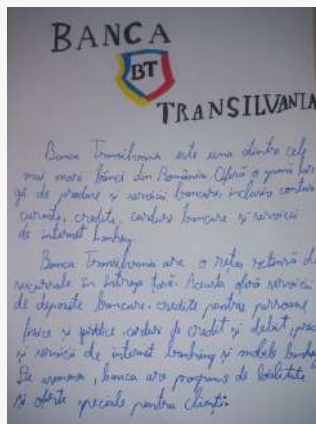 BANCA
BT
TRANSILVANIA
Banca Transilvania este una dintre cele
mai mari bănci din România. Oferă o gamă lar-
gă de produse și servicii bancare, inclusiv conturi
curente, credite, carduri bancare și servicii
de internet banking.
Banca Transilvania are o rețea extinsă de
sucursale în întreaga țară. Aceasta oferă servicii
de depozite bancare, credite pentru persoane
fizice și juridice, carduri de credit și debit, prec
și servicii de internet banking și mobile banking
De asemenea, banca are programe de loialitate
și oferte speciale pentru clienți.